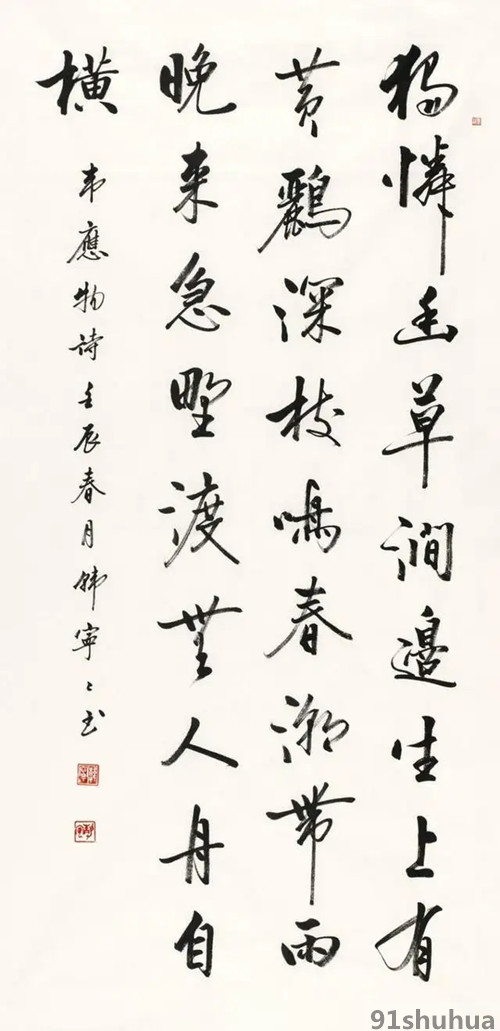 獨憐幽草澗邊生上有
黃鸝深枝鳴春潮帶雨
晚來急野渡無人舟自
橫
韋應物詩壬辰春月韓寧〻书
91shuhua